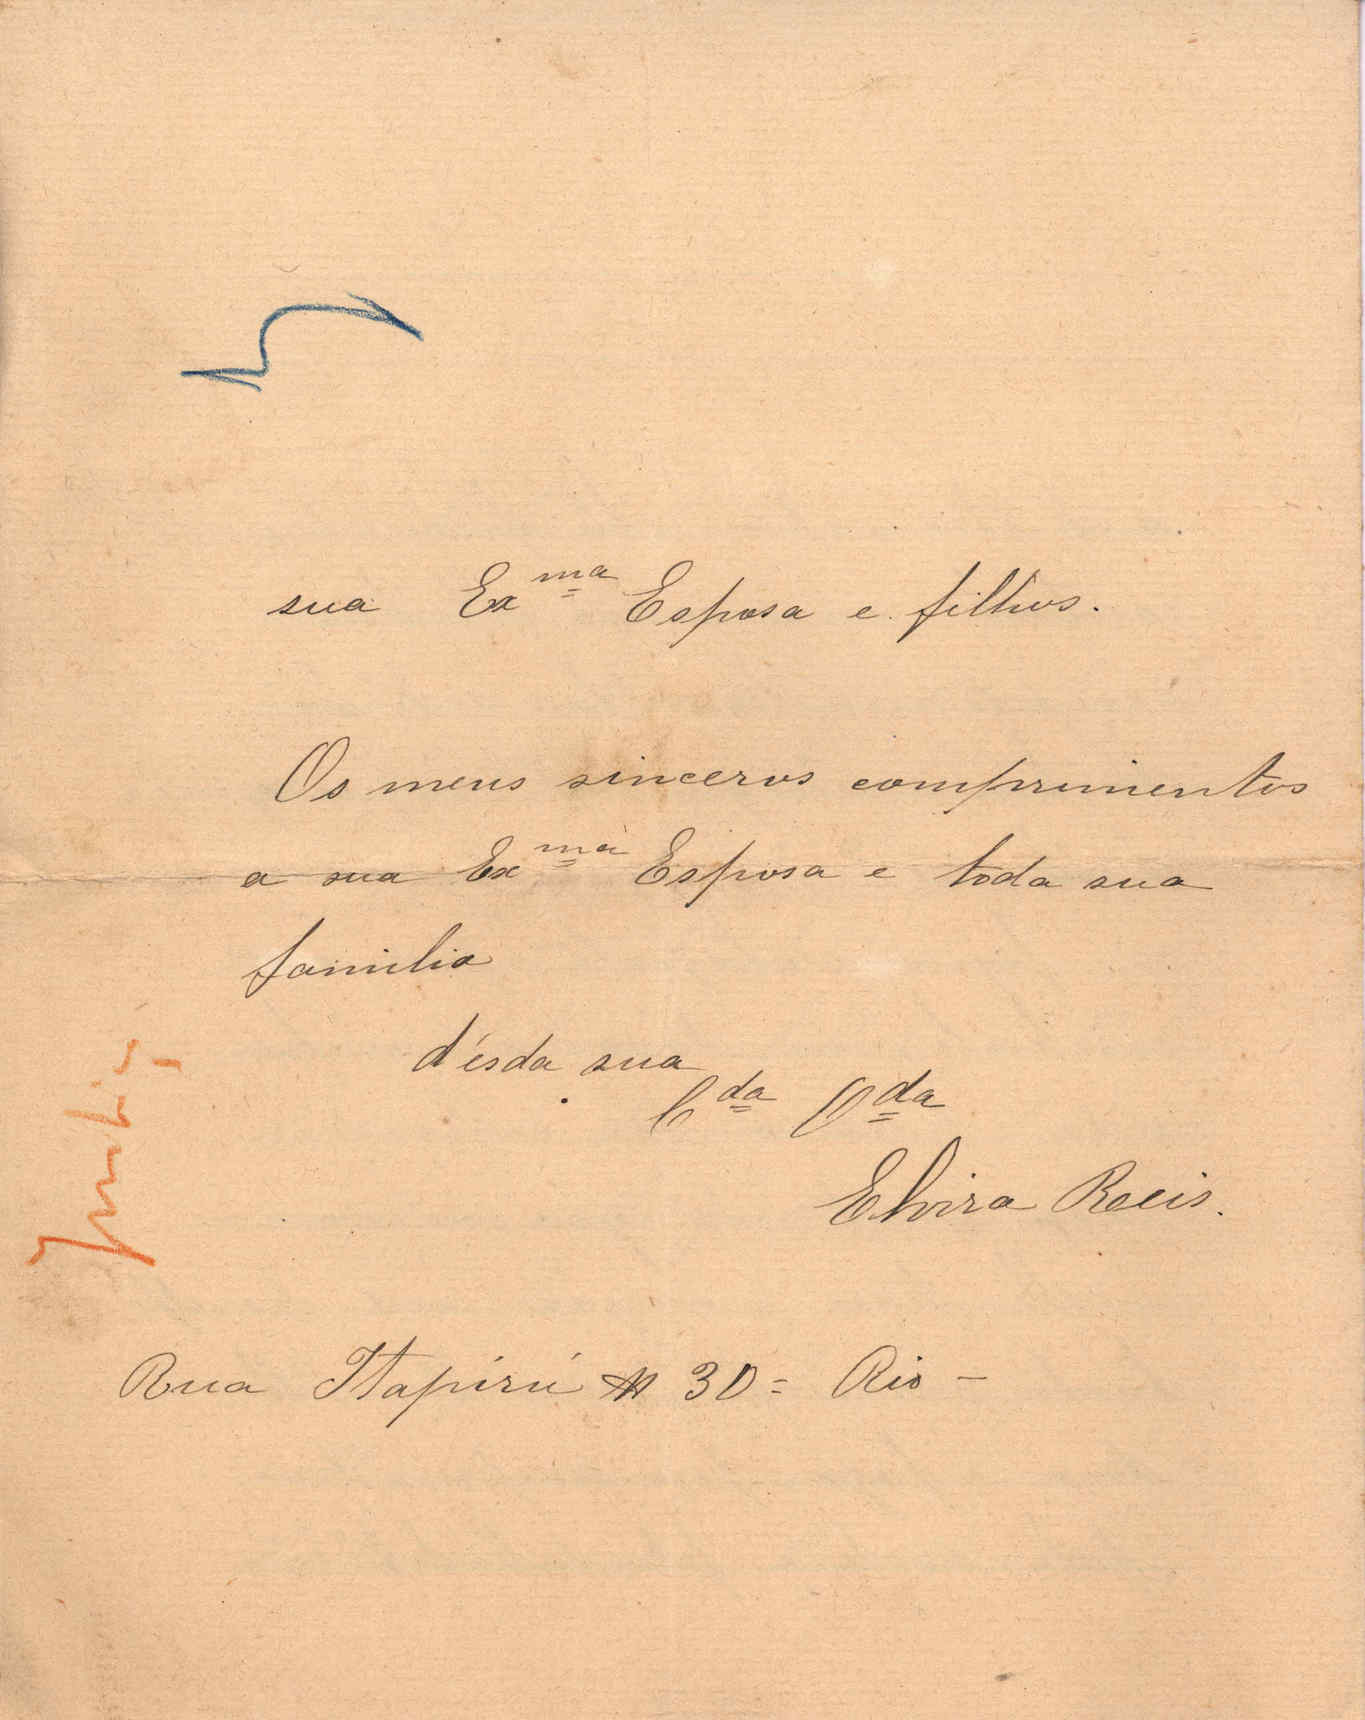 sua Exma Esposa e filhos.
Os meus sinceros comprimentos
a sua Exma Esposa e toda sua
familia
d'ésda sua
Cda Oda
Elvira Reis.
Rua Itapirú N 30 = Rio —